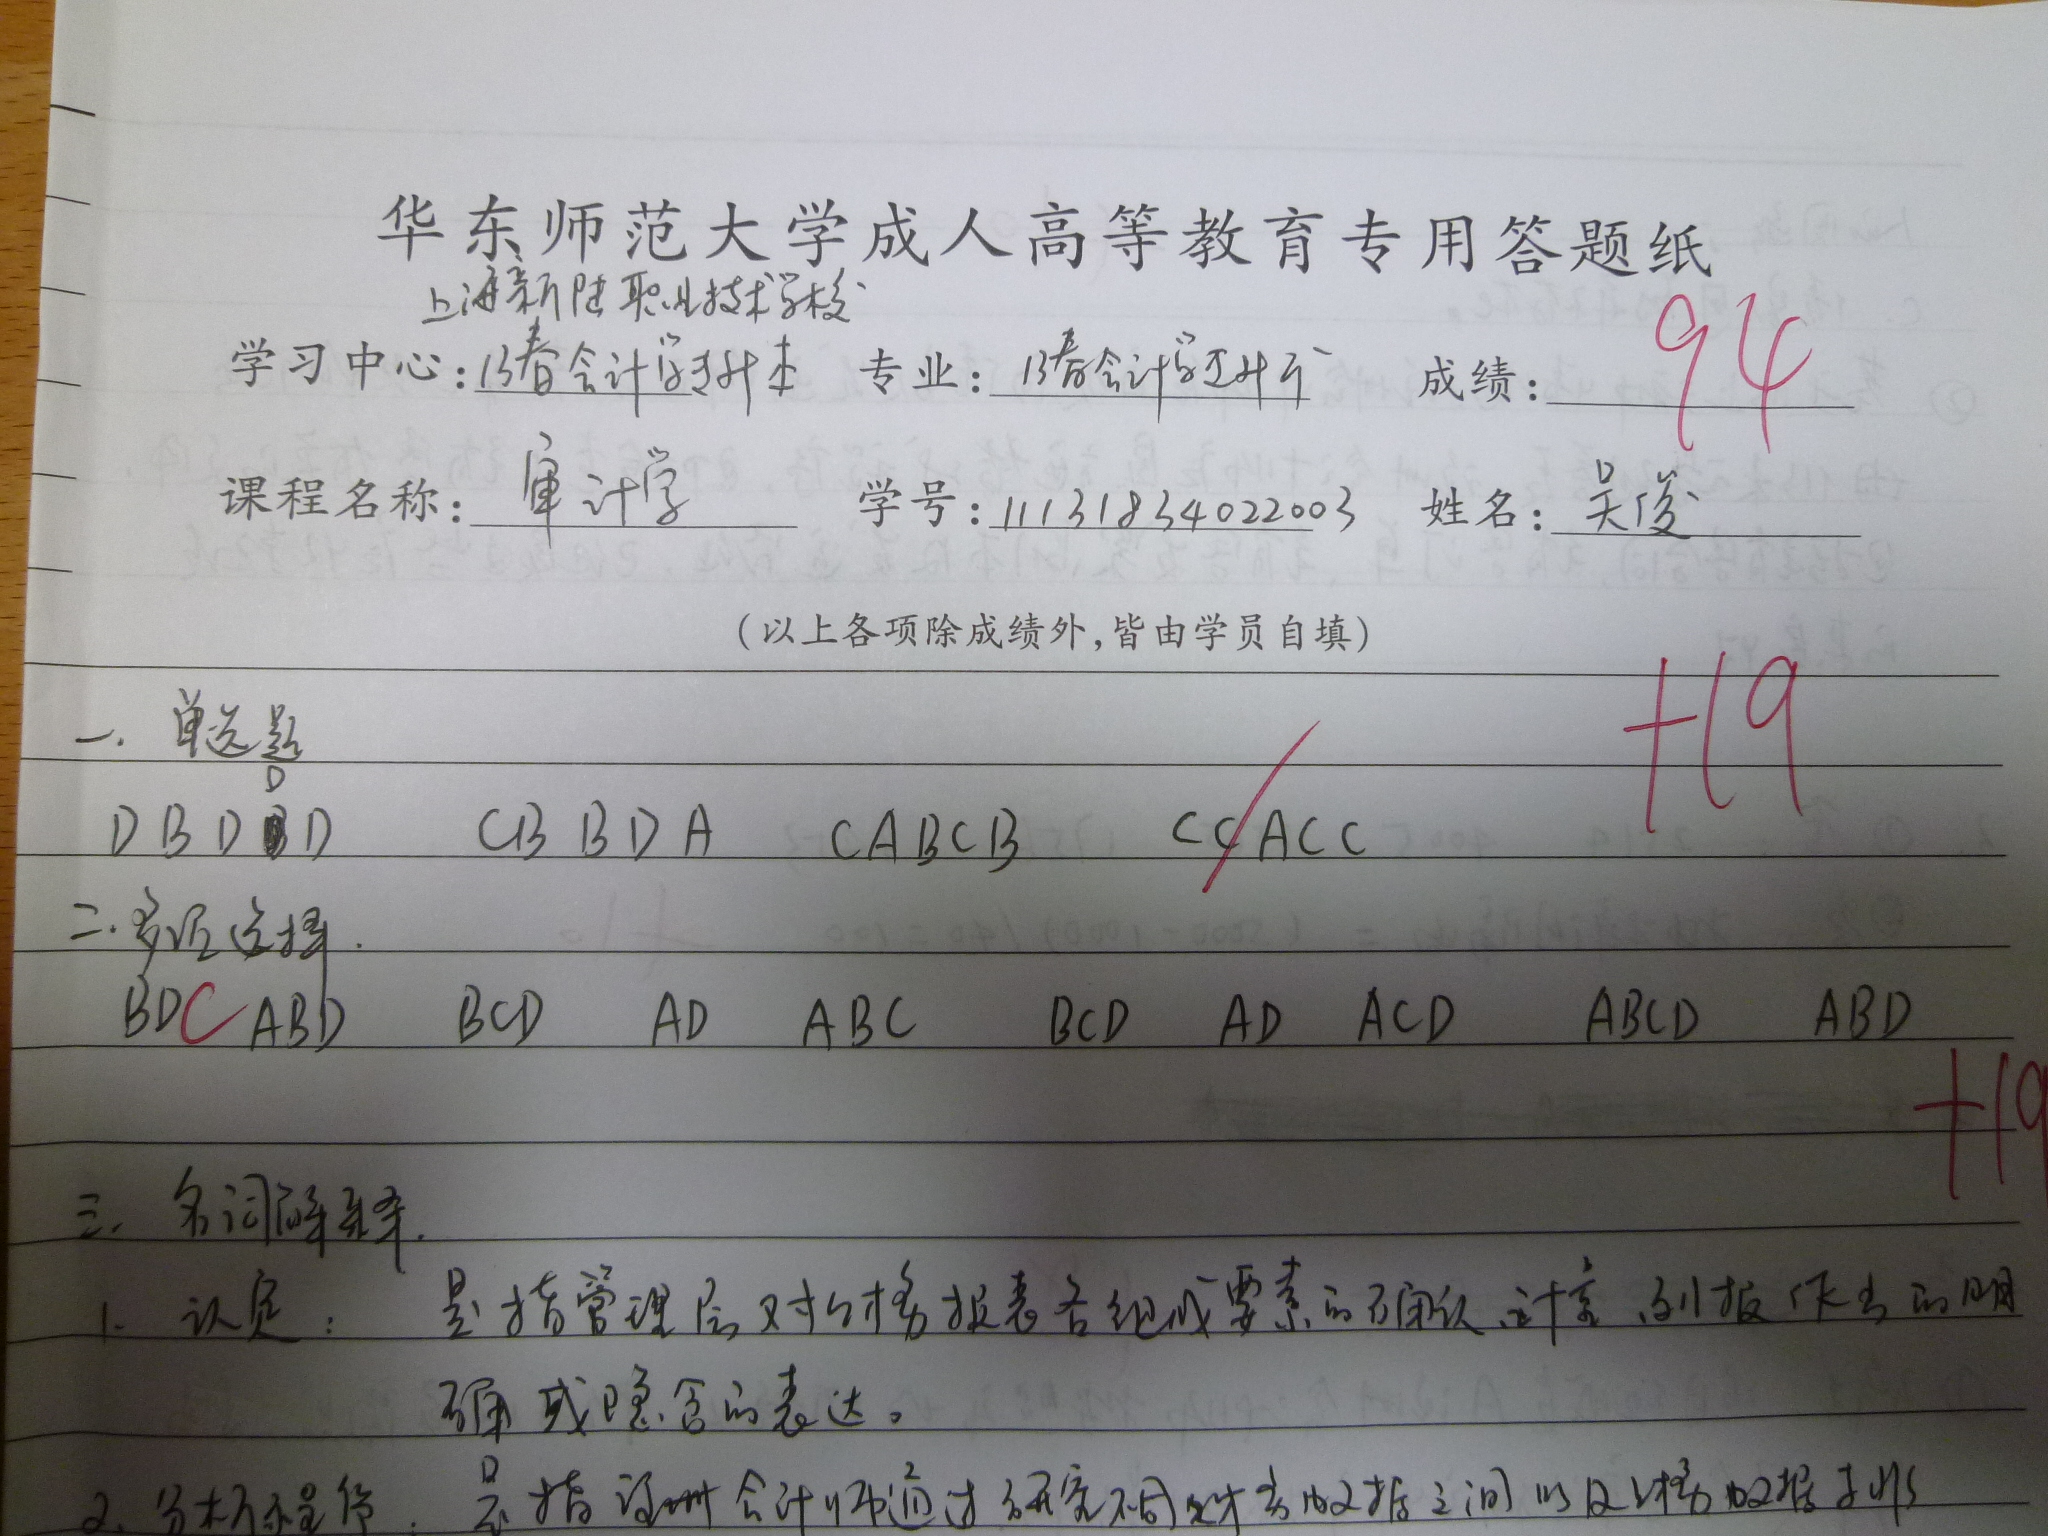 华东师范大学成人高等教育专用答题纸
上海新陆职业技术学校
学习中心:13春会计学专升本 专业:13春会计学专升本 成绩:94
课程名称:审计学 学号:11131834022003 姓名:吴俊
(以上各项除成绩外,皆由学员自填)
+19
一. 单选题
D
D B D B D C B B D A C A B C B C C A C C
二. 多项选择.
BDC ABD BCD AD ABC BCD AD ACD ABCD ABD
+19
三. 名词解释.
1. 认定: 是指管理层对财务报表各组成要素的确认、计量、列报作出的明
确或隐含的表达。
2. 分析程序: 是指注册会计师通过研究不同财务数据之间以及财务数据与非